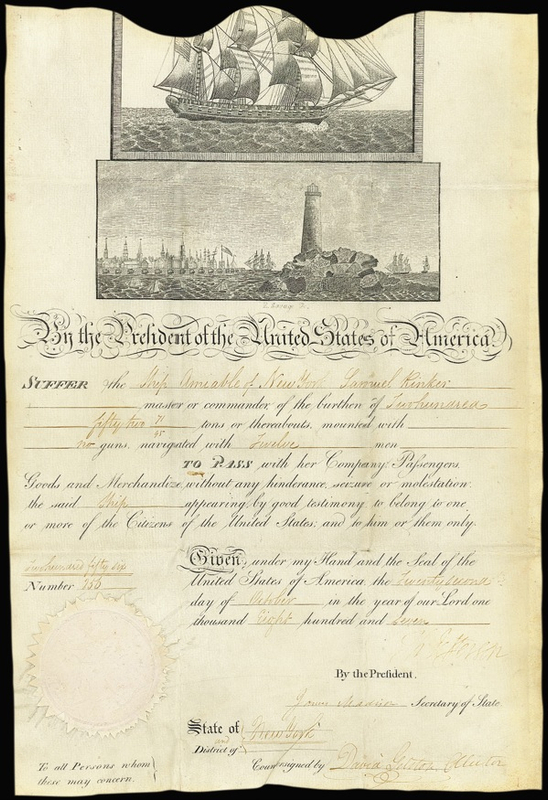 By the President of the United States of America,
SUFFER the Ship Amiable of New York Samuel Rinker
master or commander of the burthen of Two hundred
fifty two 71/95 tons or thereabouts, mounted with
no guns, navigated with Twelve men
TO PASS with her Company, Passengers,
Goods and Merchandize without any hinderance, seizure or molestation;
the said Ship appearing by good testimony to belong to one
or more of the Citizens of the United States; and to him or them only.
Given, under my Hand and the Seal of the
United States of America, the Twenty second
day of October in the year of our Lord one
thousand Eight hundred and Seven
Two hundred fifty six
Number 256
Th Jefferson
By the President.
James Madison Secretary of State
State of New York
and
District of
Countersigned by David Gelston Collector
To all Persons whom
these may concern.